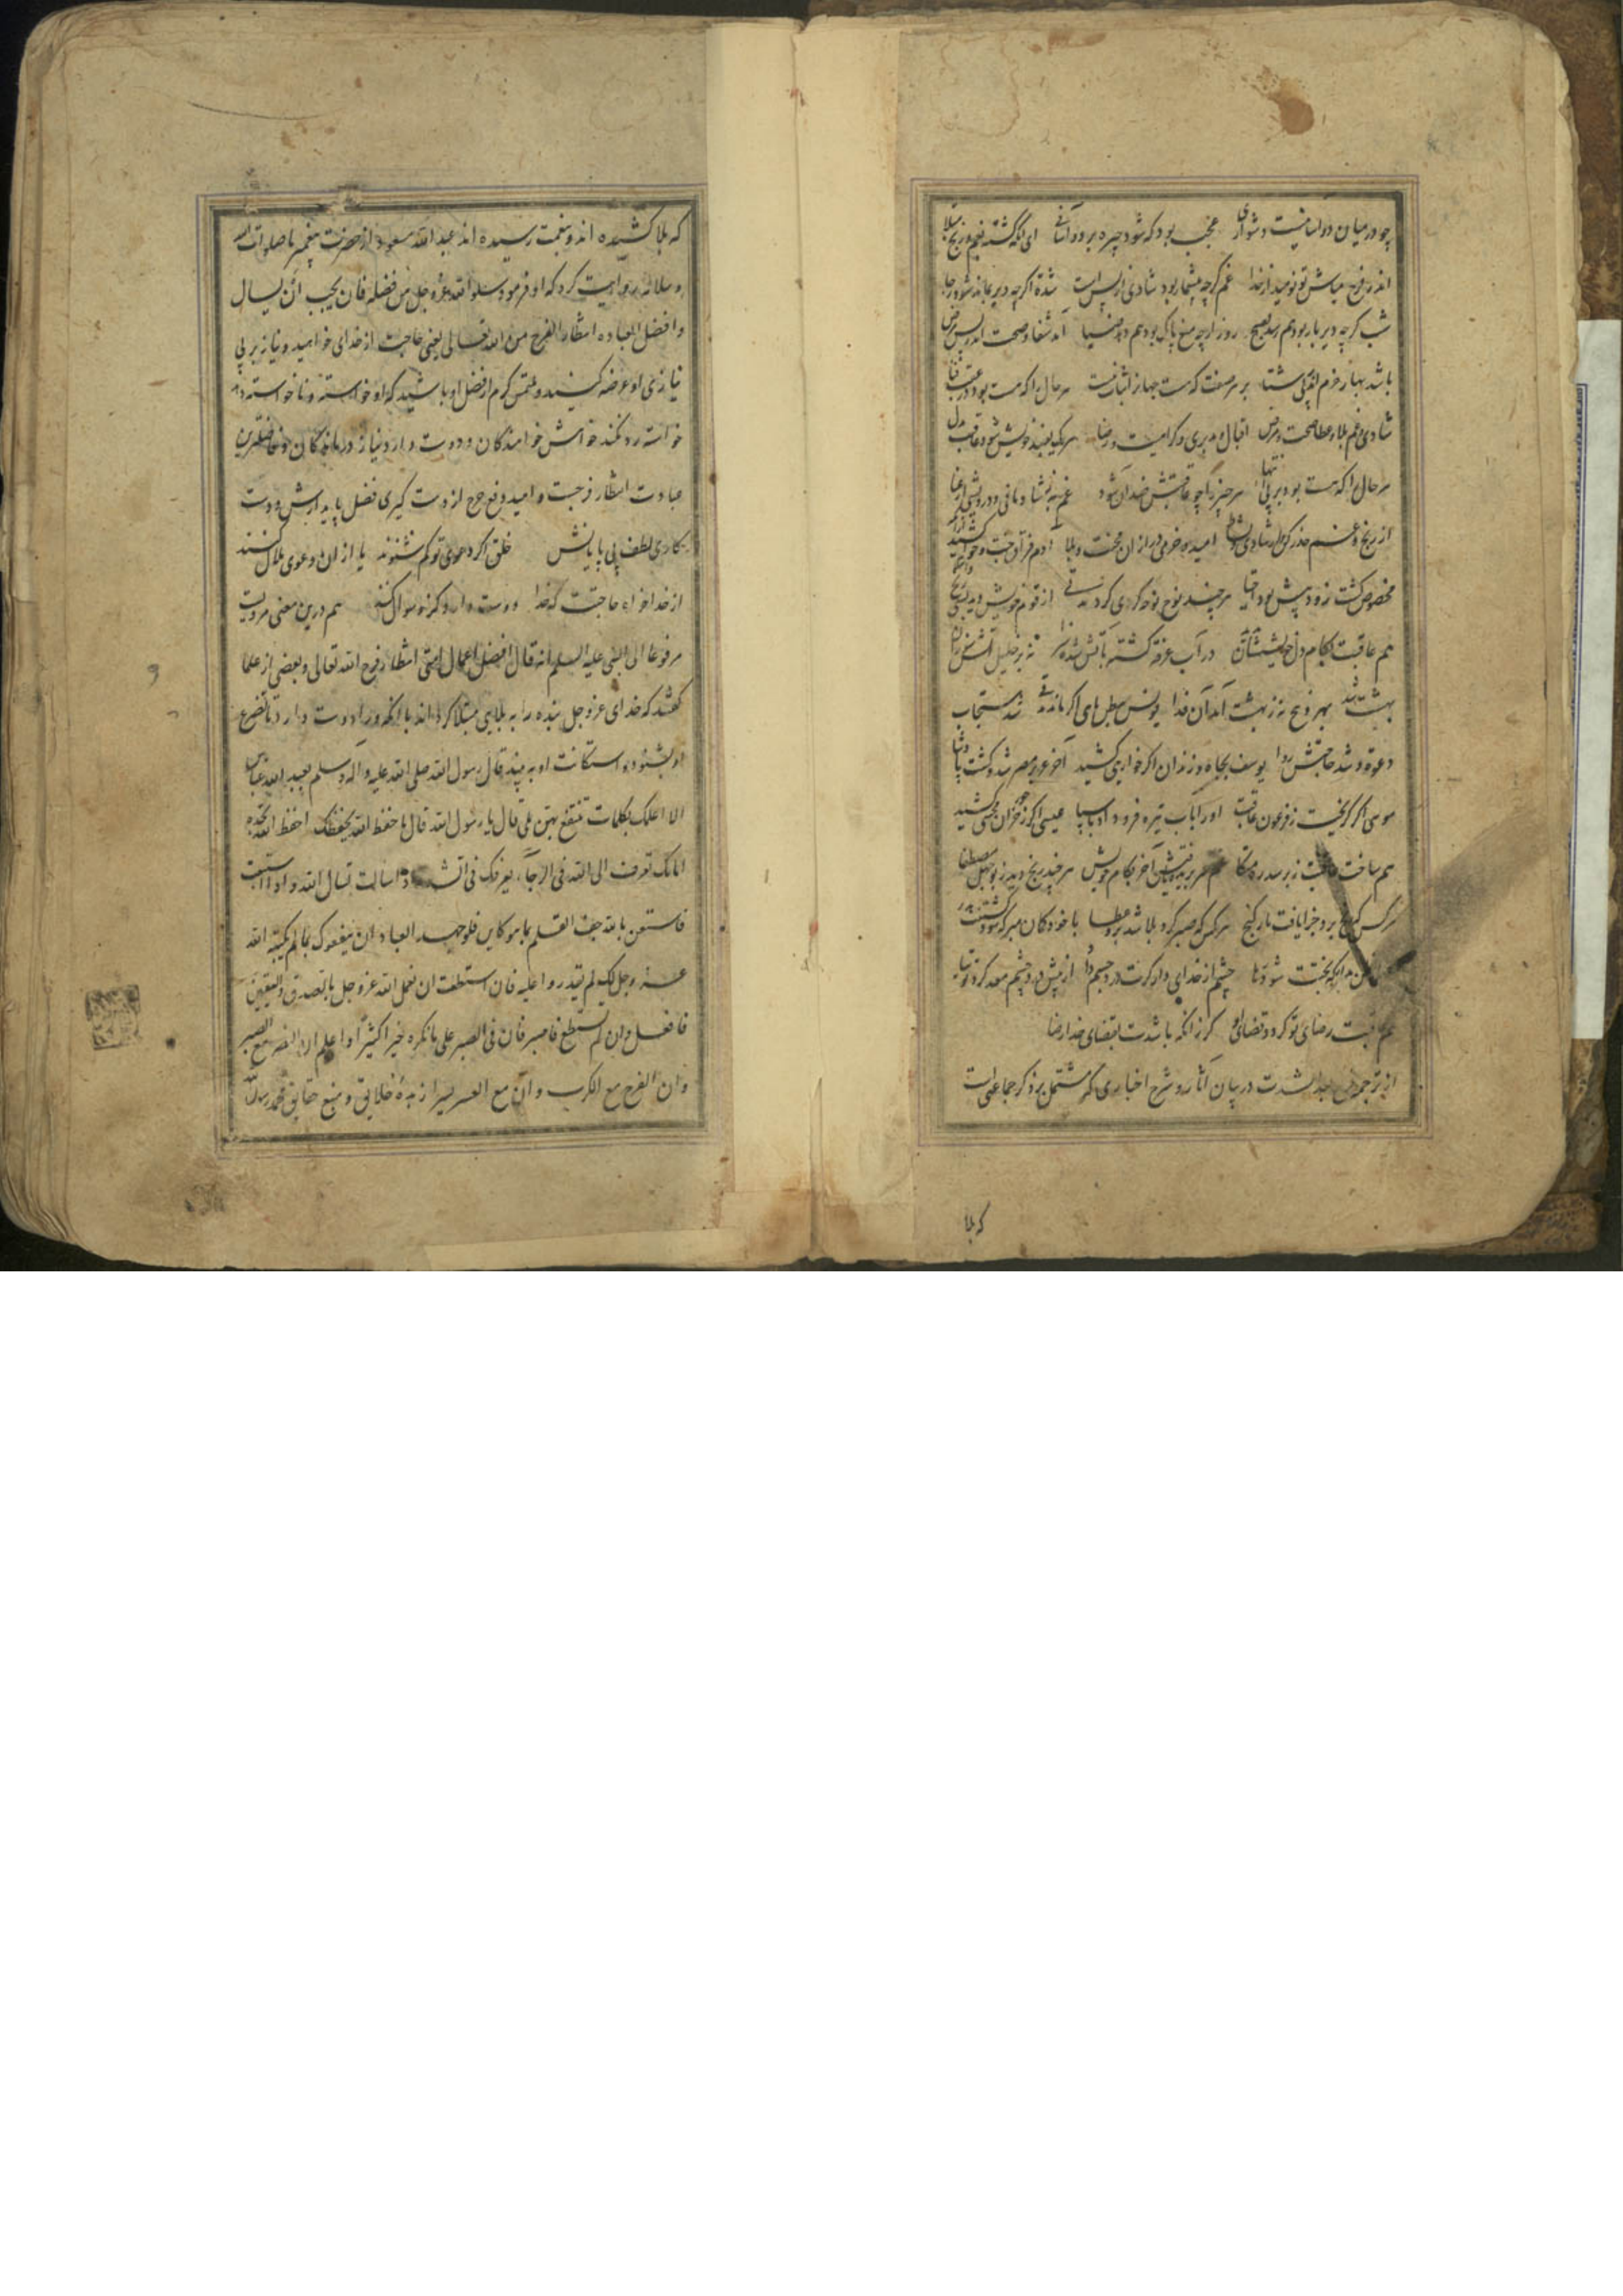 چو در میان دو آسانیست دشواری عجب بود که شود چیره بر دو آسانی ای آنکه گشته بغم و رنج مبتلا
اندر فرج مباش تو نومید از خدا غم گرچه بیشمار بود شادی از پس است شدة اگرچه دیر بماند شود رجا
شب گرچه دیر باز بود هم رسد بصبح روز ارچه میغ ناک بود هم دهد ضیا آمد شفا و صحت اندر پس مرض
باشد بهار خرم اندر پی شتا بر هر صفت که هست جهان را ثبات نیست هر حال را که هست بود در عقب فنا
شادی و غم بلا و عطا صحت و مرض اقبال و مدبری و کرامیت و رضا هر یک بضد خویش شود عاقبت بدل
هر حال را که هست بود بر پی انتها هر چیز را چو عاقبتش ضد آن شود غم به ز شادمانی و درویشی از غنا
از رنج و غم حذر کن و از شادی و نشاط امید و خرمی در ازان محنت و بلا آدم فراق جنت و حوا کشید
مخصوص گشت زود پیش بود اجتبا هر چند نوح نوحه گری کرد مدتی از قوم خویش دید بسی رنج
هم عاقبت بکام دل خویشتن در آب غرقه گشته بآتش شده سزا نه بر خلیل آتش سوزان
بهشت شد بهر ذبح نه ز بهشت آمد آن فدا یونس ببطن ماهی اگر ماند مدتی شد مستجاب
دعوة و شد حاجتش روا یوسف بچاه و زندان اگر خواریی کشید آخر عزیز مصر شد و گشت پادشا
موسی اگر گریخت ز فرعون عاقبت او را بآب تیره فرود او با سپا عیسی اگر ز خران محنتی کشید
هم ساخت عاقبت زبر سدره متکا آخر بکام خویش هر چند رنج دید ز بوجهل مصطفا
هر کس که رنج برد جزا یافت باز گنج هر کس که صبر کرد بلا شد برو عطا با خود گمان مبر که
بختت شود تباه چشم از خدای دار گرت درد چشم از پیش درد چشم معد کرد توتیا
هم عاقبت رضای تو گردد قضای او گر زانکه باشدت بقضای خدا رضا
از ترجمه فرج بعد الشدت در بیان آثار و شرح اخباری که مشتمل بر ذکر جماعتی است
که بلا
که بلا کشیده اند و بنعمت رسیده اند عبد الله مسعود از حضرت پیغمبر ما صلوات الله
و سلامه روایت کرد که او فرمود سلوا الله عز و جل من فضله فان یحب ان یسال
و افضل العباده انتظار الفرج من الله تعالی یعنی حاجت از خدای خواهید و نیاز بر بی
نیازی او عرضه کنید و ملتمس کرم از فضل او باشید که او خواسته و ناخواسته دهد
خواسته رد نکند خواهش خواهندگان و دوست دارد نیاز درماندگان و فاضلترین
عبادت انتظار فرجست و امید دفع حرج از دست گیری فضل پایدارش و دست
کاری لطف بی پایانش خلق اگر دعوی تو کم شنوند یا از ان دعوی ملال کنند
از خدا خواه حاجتت که خدا دوست دارد کزو سوال کنند هم درین معنی مرویست
مرفوعا الی النبی علیه السلم انه قال افضل اعمال امتی انتظار فرج الله تعالی و بعضی از علما
گفتند که خدای عز و جل بنده را به بلایی مبتلا گرداند با آنکه ورا دوست دارد تا تضرع
او بشنود و استکانت او به بیند قال رسول الله صلی الله علیه و اله و سلم لعبد الله عباس
الا اعلمک بکلمات تنتفع بهن بلی قال یا رسول الله قال احفظ الله یحفظک احفظ الله تجده
امامک تعرف الی الله فی الرخآء یعرفک فی الشدة اذا سالت تسال الله و اذا استعنت
فاستعن بالله جف القلم بما هو کاین فلو جهد العباد ان ینفعوک بما لم یکتبه الله
عز و جل لک لم یقدروا علیه فان استطعت ان تعمل الله عز و جل بالصدق و الیقین
فافعل و ان لم تستطع فاصبر فان فی الصبر علی ما تکره خیرا کثیرًا و اعلم ان النصر مع الصبر
و ان الفرج مع الکرب و ان مع العسر یسرا زبدهٔ خلایق و منبع حقایق محمد رسول الله